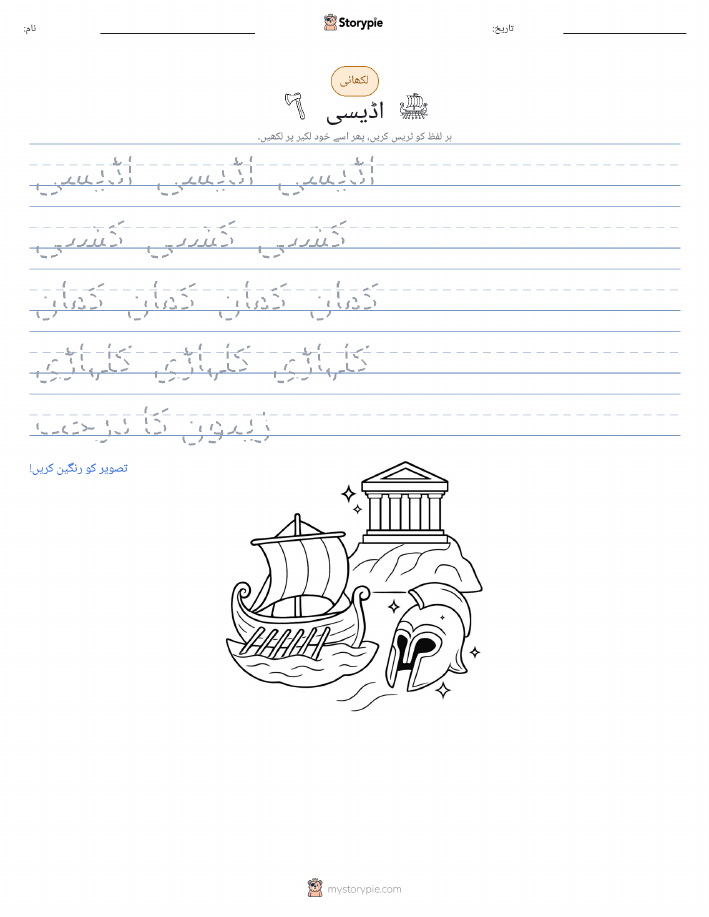 نام:
Storypie
تاریخ:
لکھائی
اڈیسی
ہر لفظ کو ٹریس کریں، پھر اسے خود لکیر پر لکھیں۔
اڈیسی اڈیسی اڈیسی
کشتی کشتی کشتی
کمان کمان کمان کمان
کلہاڑی کلہاڑی کلہاڑی
زیتون کا درخت
تصویر کو رنگین کریں!
mystorypie.com